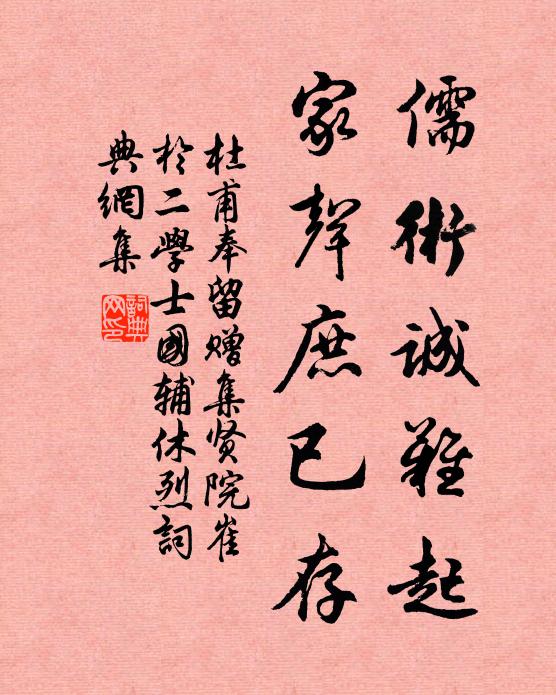 儒術誠難起
家聲庶已存
杜甫奉留赠集贤院崔
於二學士國辅休烈詞
典網集
詞典
网印